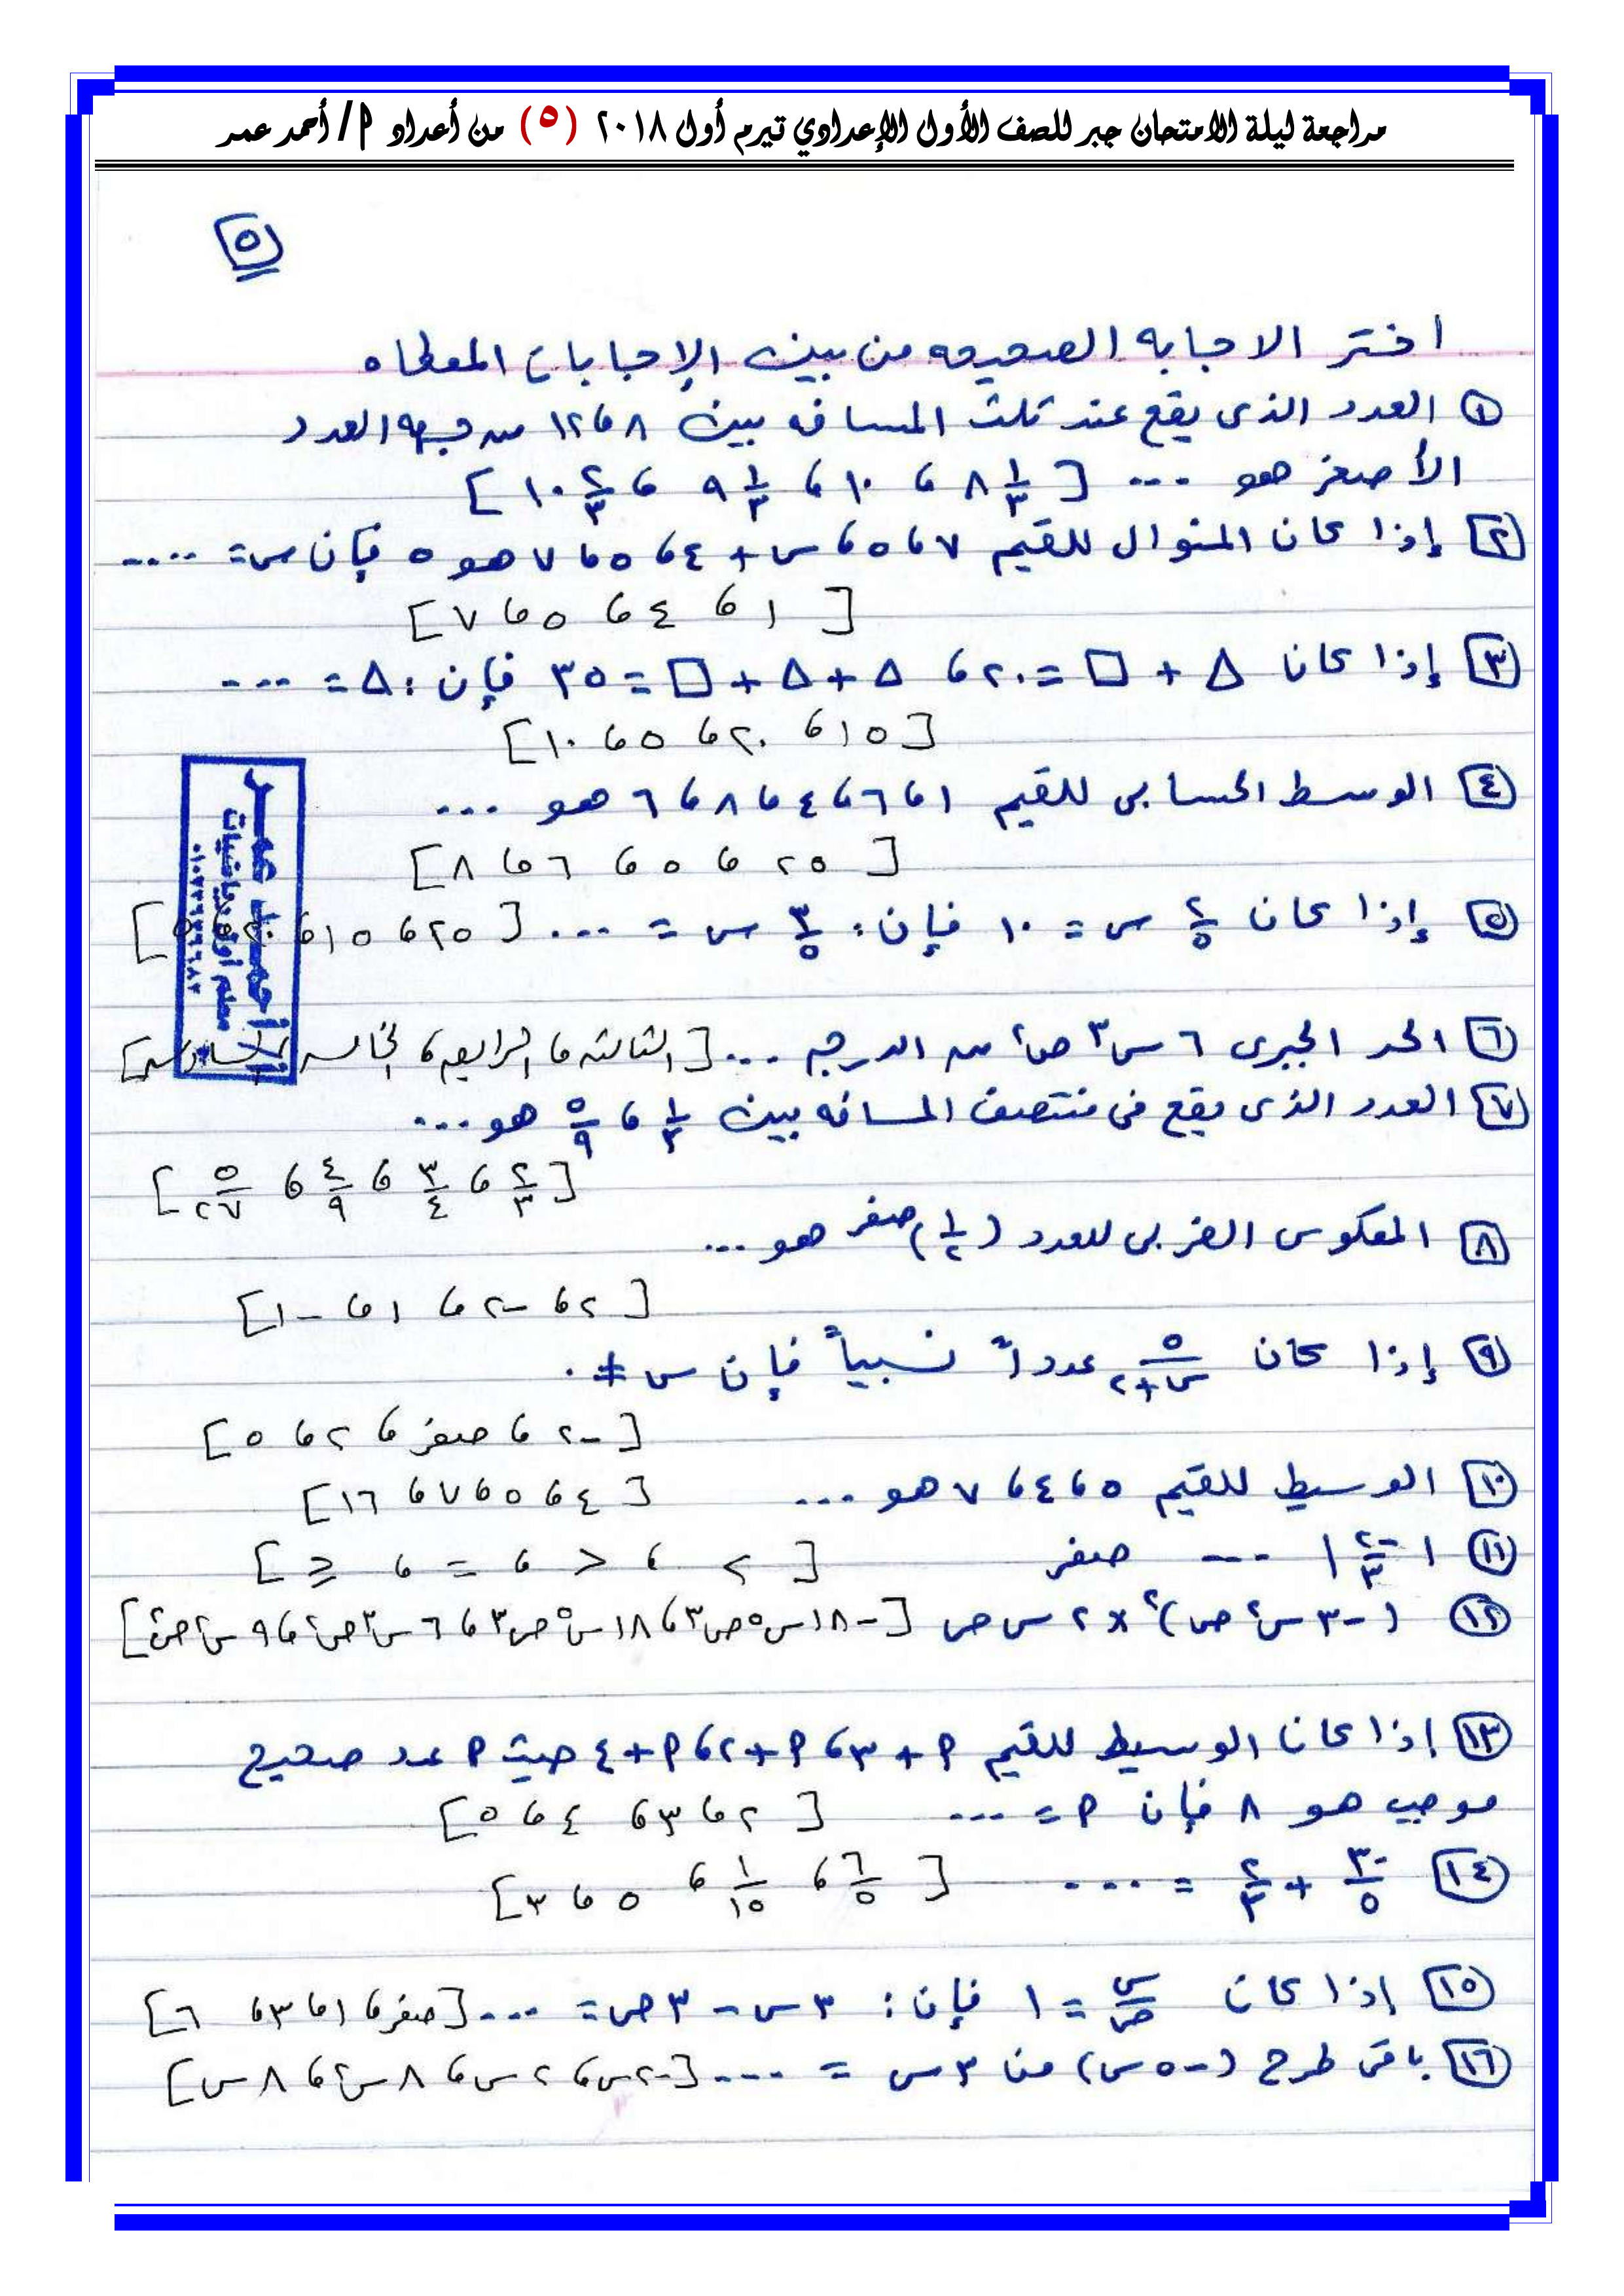 مراجعة ليلة الامتحان جبر للصف الأول الإعدادي تيرم أول ٢٠١٨ (٥) من أعداد أ/ أحمد عمر
٥
اختر الاجابه الصحيحه من بين الإجابات المعطاه
١ العدد الذى يقع عند ثلث المسافه بين ٨ ، ١٢ من جهه العدد
الأصغر هو ... [ ٨ ١/٣ ، ١٠ ، ٩ ١/٣ ، ١٠ ٢/٣ ]
٢ إذا كان المنوال للقيم ٧ ، ٥ ، س + ٤ ، ٥ ، ٧ هو ٥ فإن س = ....
[ ١ ، ٤ ، ٥ ، ٧ ]
٣ إذا كان △ + □ = ٢٠ ، △ + △ + □ = ٣٥ فإن : △ = ....
[ ١٥ ، ٢٠ ، ٥ ، ١٠ ]
٤ الوسط الحسابى للقيم ١ ، ٦ ، ٤ ، ٨ ، ٦ هو ...
[ ٢٥ ، ٥ ، ٦ ، ٨ ]
٥ إذا كان ٢/٥ س = ١٠ فإن : ٣/٥ س = ... [ ٢٥ ، ١٥ ،
أحمد عمر
معلم أول رياضيات
٦ الحد الجبرى ٦ س٣ ص٢ من الدرجه ... [ الثالثه ، الرابعه ، الخامسه ، السادسه ]
٧ العدد الذى يقع فى منتصف المسافه بين ١/٣ ، ٥/٩ هو ...
[ ٢/٣ ، ٣/٤ ، ٤/٩ ، ٥/٢٧ ]
٨ المعكوس الضربى للعدد (١/٢)صفر هو ...
[ ٢ ، -٢ ، ١ ، -١ ]
٩ إذا كان ٥/(س+٢) عدداً نسبياً فإن س ≠ .
[ -٢ ، صفر ، ٢ ، ٥ ]
١٠ الوسيط للقيم ٥ ، ٤ ، ٧ هو ... [ ٤ ، ٥ ، ٧ ، ١٦ ]
١١ | -٢/٣ | --- صفر [ < ، > ، = ، ≥ ]
١٢ (-٣ س٢ ص)٢ × ٢ س ص [ -١٨ س٥ ص٣ ، ١٨ س٥ ص٣ ، ٦ س٣ ص٢ ، ٩ س٢ ص٢ ]
١٣ إذا كان الوسيط للقيم م + ٣ ، م + ٢ ، م + ٤ حيث م عدد صحيح
موجب هو ٨ فإن م = ... [ ٢ ، ٣ ، ٤ ، ٥ ]
١٤ ٣٠/٥ + ٢/٣ = .... [ ٦/٥ ، ١/١٥ ، ٥ ، ٣ ]
١٥ إذا كان س/ص = ١ فإن : ٣ س - ٣ ص = ... [ صفر ، ١ ، ٣ ، ٦ ]
١٦ باقى طرح (-٥ س) من ٣ س = .... [ -٢ س ، ٢ س ، ٨ س٢ ، ٨ س ]